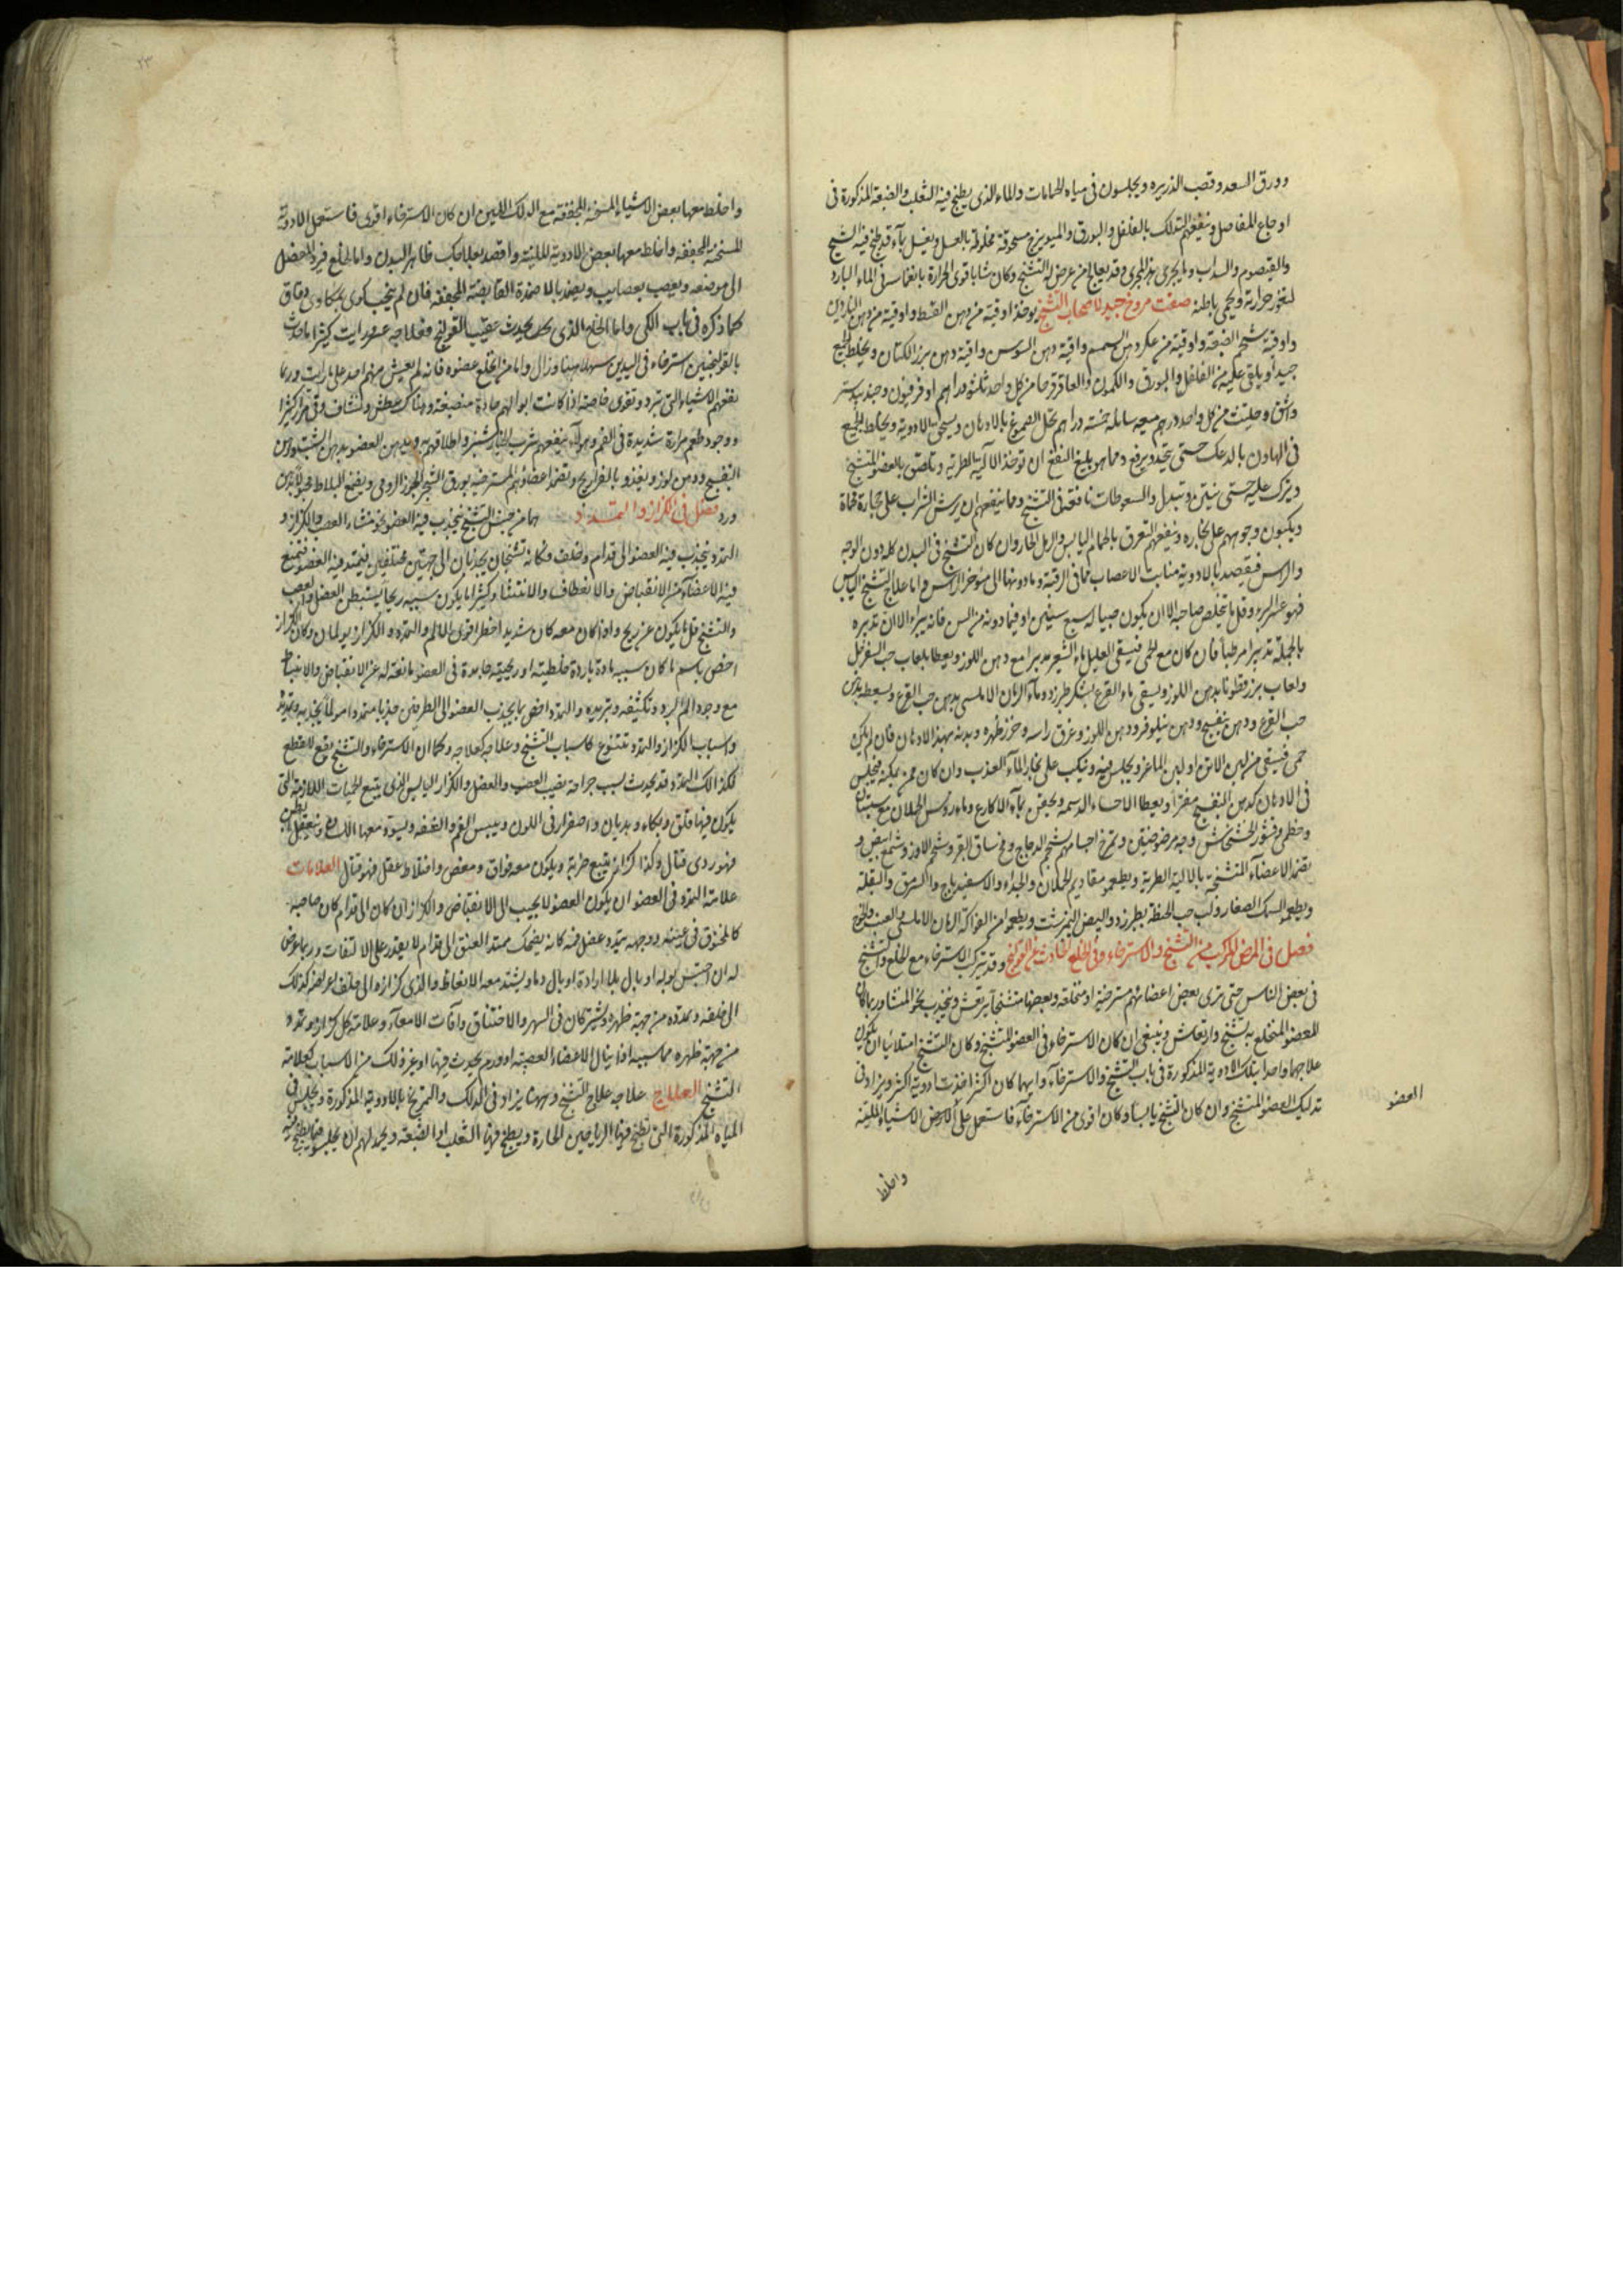 وورق السعد وقصب الذريره ويجلسون فى مياه الحمامات والماء الذى يطبخ فيه الثعلب والضبعة المذكورة فى
اوجاع المفاصل وينفعهم التدلك بالفلفل والبورق والميويزج مسحوقة مخلوطة بالعسل ويغسل بماء قد طبخ فيه الشيح
والقيصوم والسداب وما يجرى هذا المجرى وقد يعالج من عرض له التشنج وكان شابا قوى الحرارة بانغماسه فى الماء البارد
لتغور حرارته ويحمى باطنه صفت مروخ جيد لاصحاب التشنج يوخذ اوقية من دهن القسط واوقية من دهن الناردين
واوقية شحم الضبعة واوقية من عكر دهن السمسم واقية دهن السوس واقية دهن بزر الكتان ويخلط الجميع
جيدا ويلقى عليه من الفلفل والبورق والكمون والعاقرقرحا من كل واحد ثلثة دراهم اوفرفيون وجندبيدستر
واشق وحلتيت من كل واحد درهم ميعه سائله خمسه دراهم تحل الصموغ بالادهان ويسحق بالادوية ويخلط الجميع
فى الهاون بالدعك حتى يتحد ويرفع ومما هو بليغ النفع ان توخذ الآلية الطرية وتلصق بالعضو المتشنج
ويترك عليه حتى ينتن وتبدل والسعوطات نافعة فى التشنج ومما ينفعهم ان يرش الشراب على حجارة محماة
ويكبون وجوههم على بخاره وينفعهم التعرق بالحمام اليابس والرمل الحار وان كان التشنج فى البدن كله دون الوجه
والراس فيقصد بالادوية منابت الاعصاب مما فى الرقبة وما دونها الى مؤخر الراس واما علاج التشنج اليابس
فهو عسر البرء وقل ما تخلص صاحبه الا ان يكون صبيا له سبع سنين او فيما دونه من السن فانه يبراء الا ان تدبيره
بالجملة تدبيرا مرطبا فان كان مع الحمى فيسقى العليل ماء الشعير مدبرا مع دهن اللوز ويعطا بلعاب حب السفرجل
ولعاب بزر قطونا بدهن اللوز ويسقى ماء القرع بسكر طبرزد وماء الرمان الاملسى بدهن حب القرع ويسعط بدهن
حب القرع ودهن بنفسج ودهن نيلوفر ودهن اللوز وغرق راسه وخرز ظهره وبدنه بهذا الادهان فان لم يكن
حمى فيسقى من لبن الاتن او لبن الماعز ويجلس فيه وينكب على بخار الماء العذب وان كان ممن يمكنه فيجلس
فى الادهان كدهن البنفسج مفترا ويعطا الاحساء الدسمه ويحقن بماء الاكارع وماء روس الحملان مع سبستان
وخطمى وقشور الخشخاش وحبه مرضوضين وتمرخ اجسامهم بشحم الدجاج ومخ ساق البقر وشحم الاوز وشمع ابيض و
تضمد الاعضاء المتشنجة بالالية الطرية ويطعمو مقاديم الحملان والجداء والاسفيدباج والسرمق والبقلة
ويطعمو السمك الصغار ولب حب الحنطة بطبرزد والبيض النيمرشت ويطعموا من الفواكه الرمان الاملسى والعنب والخوخ
فصل فى المرض المركب من التشنج والاسترخاء وفى الخلع الحادث عن القولنج وقد يتركب الاسترخاء مع الخلع والتشنج
فى بعض الناس حتى ترى بعض اعضائهم مسترخية او منخلعة وبعضها متشنجا يرتعش وينجذب نحو المنشا وربما كان
للعضو المنخلع به تشنج وارتعاش وينبغى ان كان الاسترخاء فى العضو المتشنج وكان التشنج امتلائيا ان يكون
علاجهما واحدا بتلك الادوية المذكورة فى باب التشنج والاسترخاء وايهما كان اكثر اخذت ادوية اكثر ويزاد فى
تدليك العضو المتشنج وان كان التشنج يابسا وكان اقوى من الاسترخاء فاستعمل على المرض الاشياء الملينة
العضو
واخلط
واخلط معها بعض الاشياء المسخنة المجففة مع الدلك اللين ان كان الاسترخاء اقوى فاستعمل الادوية
المسخنة المجففه واخلط معها بعض الادوية الملينة واقصد بعلاجك ظاهر البدن واما الخلع فيرد العضل
الى موضعه ويعصب بعصايب ويضمد بالاضمدة القابضة المجففه فان لم ينجب كوى بمكاوى دقاق
كما ذكره فى باب الكى واما الخلع الذى يحدث عقيب القولنج فعلاجه عسر ورايت كثيرا ما حدث
بالقولنجيين استرخاء فى اليدين سهلا هينا وزال واما من انخلع عضوه فانه لم يعيش منهم احد على ما رايت وربما
نفعهم الاشياء التى تبرد وتقوى خاصة اذا كانت ابوالهم حادة منصبغة وهناك عطش ونشاف وقئ مرار كثيرا
ووجود طعم مرارة شديدة فى الفم وهولاء ينفعهم شرب الخيار شنبر واطلاقهم به ويدهن العضو بدهن الشبت ودهن
البنفسج ودهن لوز ويغذو بالفراريج وتضمد اعضاؤهم المسترخية بورق الشجر الجوز الرومى
ورد فصل فى الكزاز والتمدد هما من جنس التشنج ينجذب فيه العضو نحو منشاء العصب والكزاز و
التمدد ينجذب فيه العضو الى قدام وخلف وكانه تشنجان يجذبان الى جهتين مختلفين فيتمدد فيه العضو فتمنع
فيه الاعضاء من الانقباض والانعطاف والانثناء وكثيرا ما يكون سببه ريحا يستبطن العضل والعصب
والتشنج قل ما يكون عن ريح واذا كان معه كان شديد الخطر قوى الالم والتمدد والكزاز يولمان وكان الكزاز
اخص باسم ما كان سببه مادة باردة خلطية او ريحية جامدة فى العضو مانعة له عن الانقباض والانبساط
مع وجود الم البرد وتكثيفه وتبريده والتمدد اخص بما يجذب العضو الى الطرفين جذبا متمددا مولما
واسباب الكزاز والتمدد تتنوع كاسباب التشنج وعلاجه كعلاجه وكما ان الاسترخاء والتشنج يقع لا بقطع
فكذالك التمدد قد يحدث بسبب جراحة تصيب العصب والعضل والكزاز اليابس الذى يتبع الحميات اللازمة التى
يكون فيها قلق وبكاء وهذيان واصفرار فى اللون ويبس الفم والشفه ويسود معها اللسان ويعتقل البطن
فهو ردى قتال وكذا كزاز يتبع ضربة ويكون معه فواق ومغص واختلاط عقل فهو قتال العلامات
علامة التمدد فى العضو ان يكون العضو لا يجيب الى الانقباض والكزاز ان كان الى قدام كان صاحبه
كالمخنوق فى عينيه ووجهه يتمدد عضل فيه كانه يضحك ممتد العنق الى قدام لا يقدر على الالتفات وربما عرض
له ان احتبس بوله او بال بلا ارادة او بال دما ويشتد معه الانعاظ والذى كزازه الى خلف يعرض له كذلك
الى خلفه وتمدده من جهة ظهره ويشتركان فى السهر والاختناق وآفات الامعاء وعلامة كل كزاز وتمدد
من جهة ظهره مما سببه اذا ينال الاعضاء العصبية او ورم يحدث فيها او غير ذلك من الاسباب كعلامة
التشنج العلاج علاجه علاج التشنج وههنا يزاد فى الدلك والتمريخ بالادوية المذكورة ويجلس فى
المياه المذكورة التى تطبخ فيها الرياحين الحارة ويطبخ فيها الثعلب او الضبعة ويحمد لهم ان يجلسو فيما يطبخ فيه